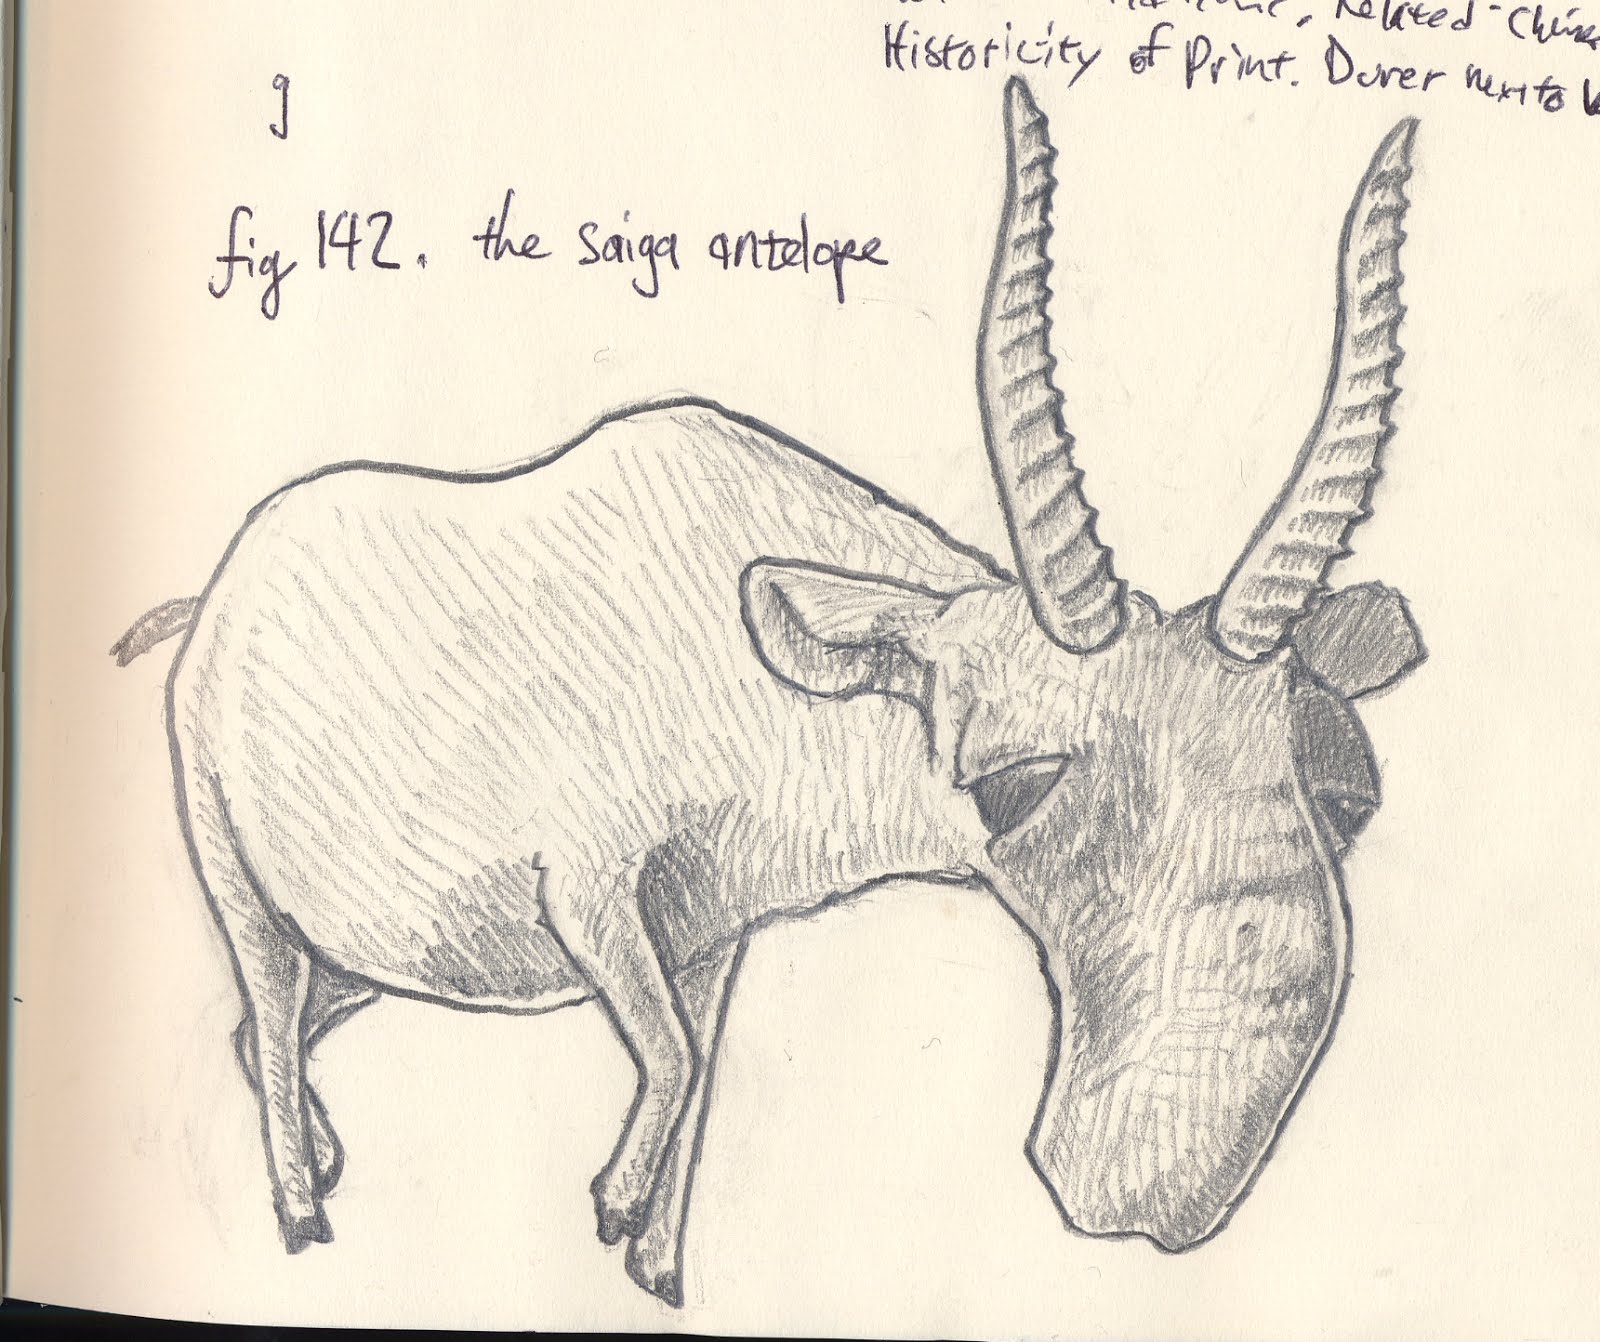 Related-
Historicity of Print. Durer next to
g
fig 142. the saiga antelope